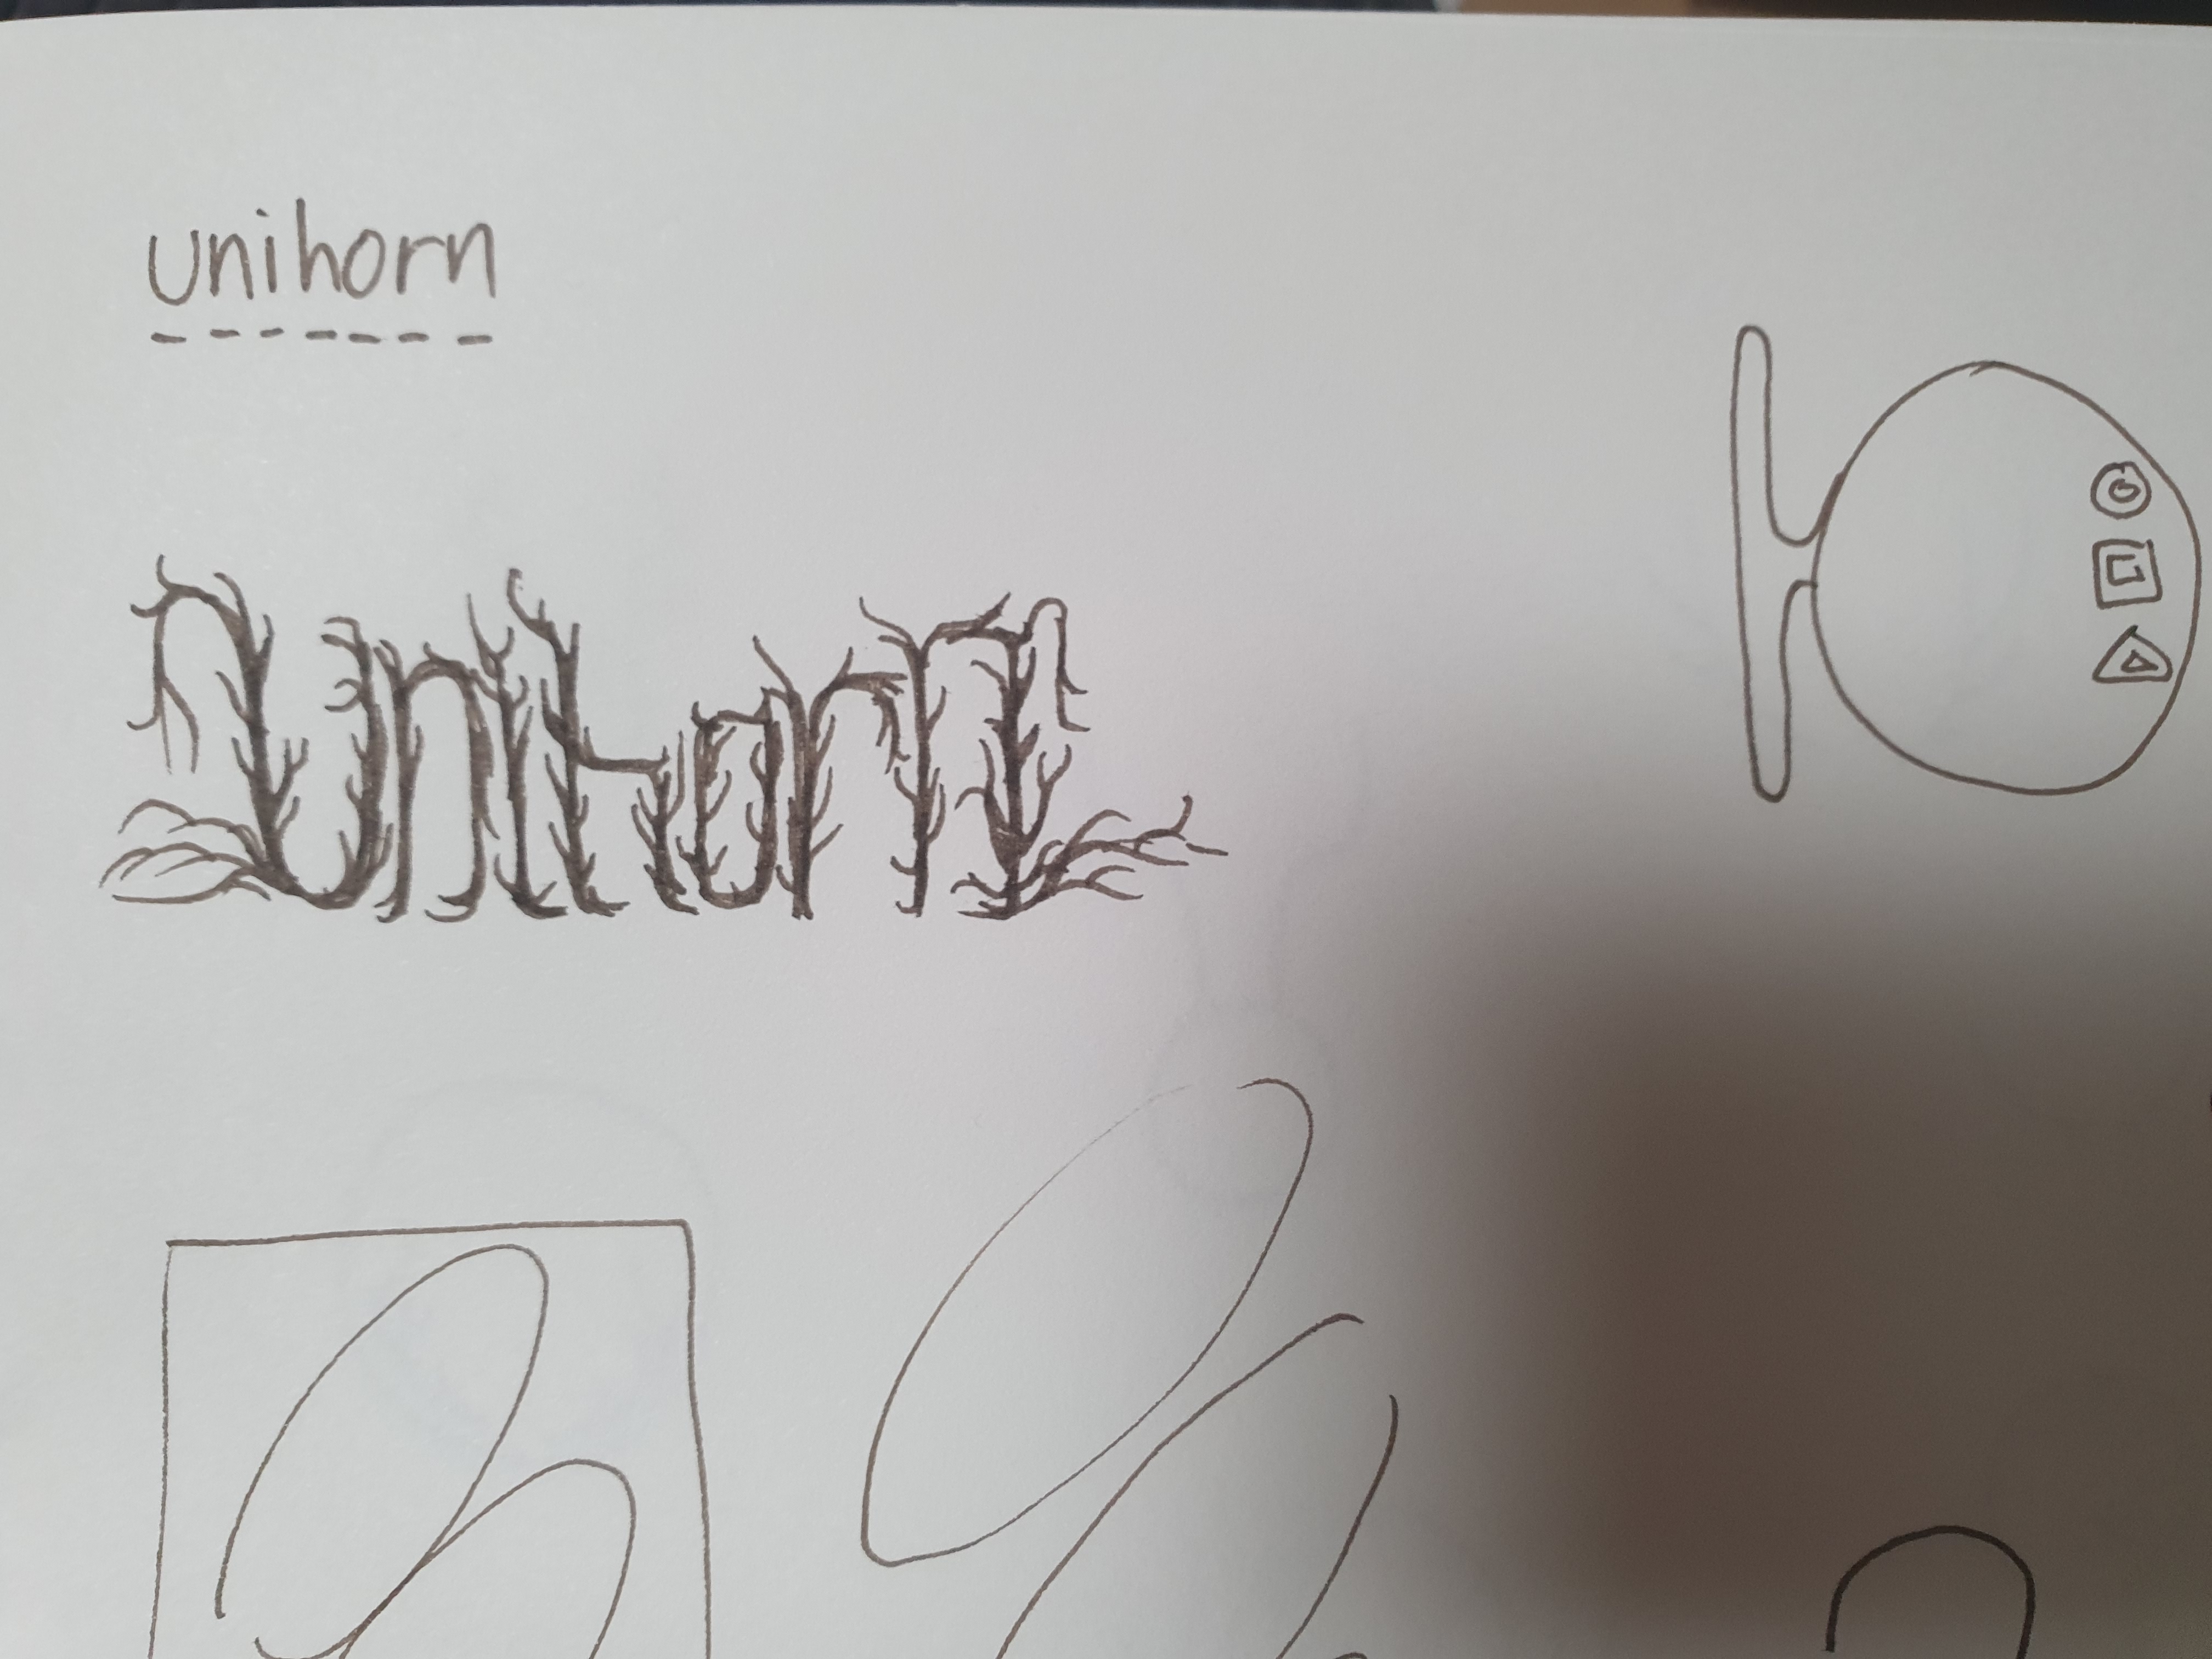 unihorn
unihorn